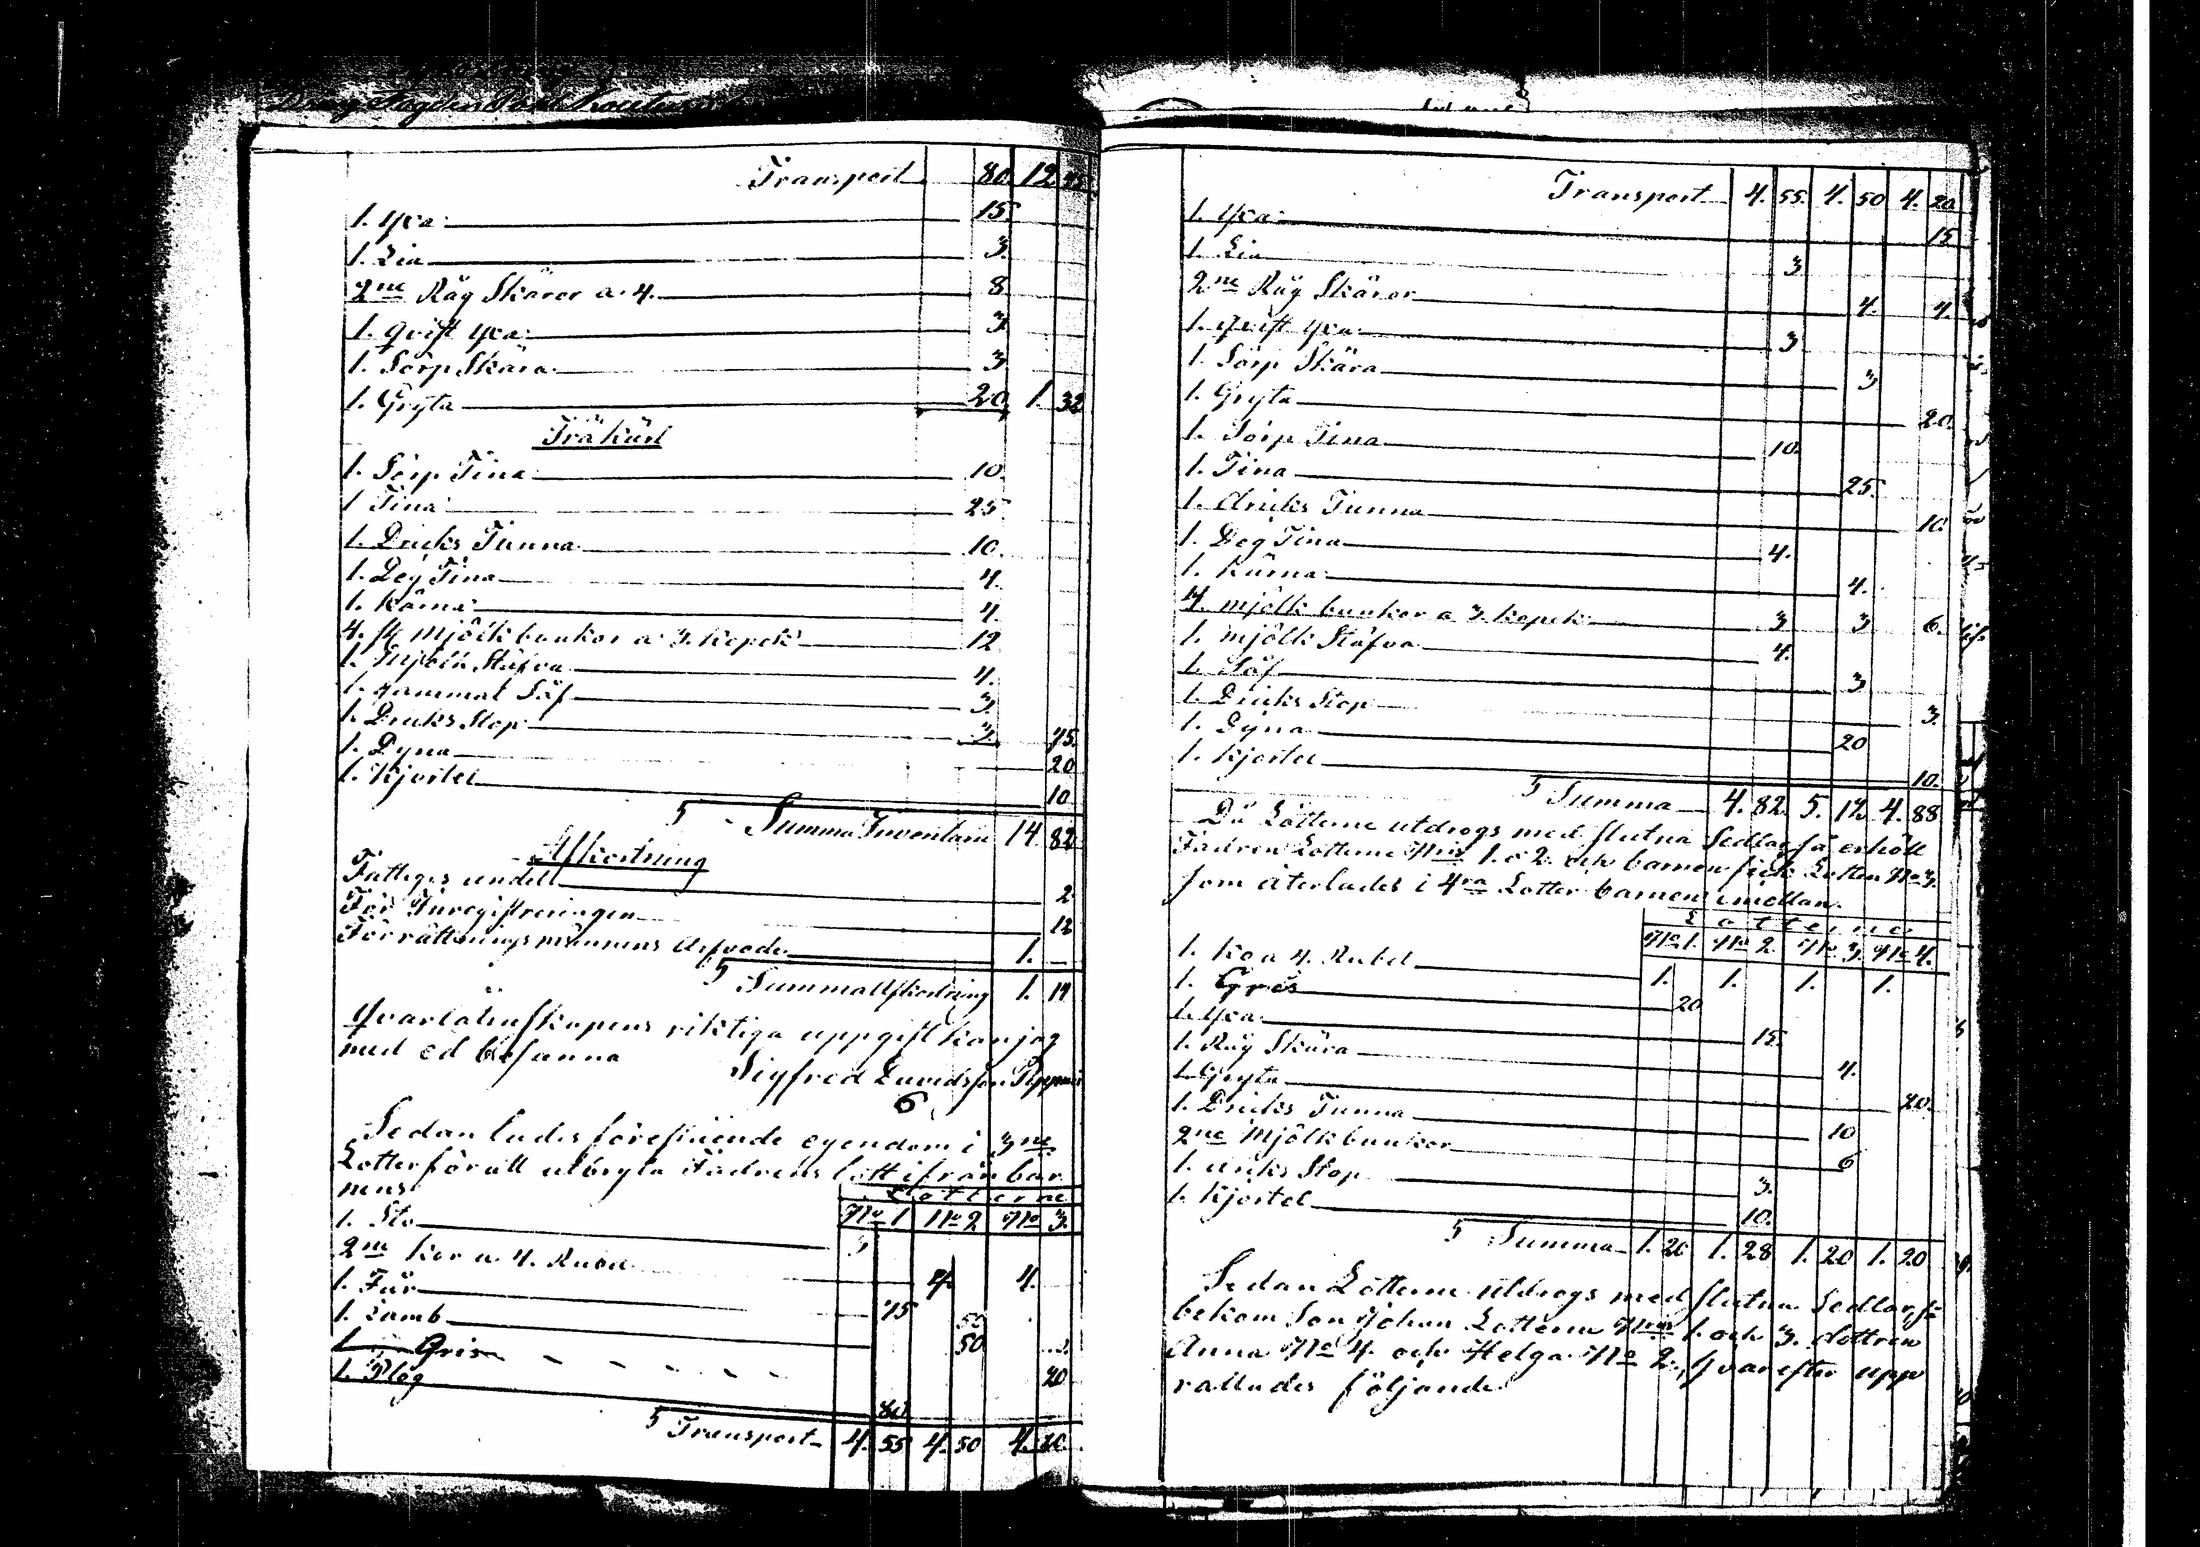 Transport 80. 12 45
1. yxa 15.
1. Lia 3.
2ne Råg Skäror a. 4. 8
1. qvist yxa 3
1. Sörp Skära 3
1. Gryta 20. 1. 32
Träkäril
1. Sörp Tina 10.
1 Tina 25
1. Dricks Tunna 10.
1. Deg Tina 4.
1. Kärna 4.
4. st mjölk bunkor a 3. kopek 12
1. Mjölk Stäfva 4.
1. gammal Såf 3.
1. Dricks Stop 3. 75.
1. Dyna 20
1. Kjortel 10
S Summa Inventarii 14. 82
Afkortning
Fattiges andel 2
För Inregistreringen 12
Förrättningsmännens Arfvode 1. —
S Summa Afkortning 1. 14
Qvarlåtenskapens riktiga uppgift kan jag
med ed besanna
Sigfred
Sedan lades förefinende egendom i 3ne
Lotter för att utbryta Fadrens lott ifrån bar
nens
Lotterne
No 1 No 2 No 3.
1. Sto 3
2ne kor a. 4. Rubel 4. 4.
1. Får 75
1. Lamb 50
1 Gris 50
1. Plog 20
80
S Transport 4. 55 4. 50 4. 20.
Transport 4. 55. 4. 50 4. 20
1. yxa 15
1. Lia 3
2ne Råg Skäror 4. 4.
1. qvist yxa 3
1. Sörp Skära 3
1. Gryta 20.
1. Sörp Tina 10.
1. Tina 25.
1. dricks Tunna 10.
1. Deg Tina 4.
1. Kärna 4.
4. mjölk bunkor a 3. kopek 3 3 6.
1. mjölk Stäfva 4.
1. Såf 3
1. Dricks Stop 3.
1. Dyna 20
1. Kjortel 10.
S Summa 4. 82. 5. 12. 4. 88
Då Lotterne utdrogs med slutna Sedlar så erhöll
Fadren Lotterne Nris 1. o 2. och barnen fick Lotten No 3.
som återlades i 4ra Lotter barnen imellan.
Lotterne
No 1. No 2. No 3. No 4.
1. Ko a 4. Rubel 1. 1. 1. 1.
1. Gris 20
1. yxa 15.
1. Råg Skära 4.
1. Gryta 20.
1. Dricks Tunna 10
2ne Mjölkbunkor 6
1. driks Stop 3.
1. Kjortel 10.
S Summa 1. 20 1. 28 1. 20 1. 20
Sedan Lotterne utdrogs med slutna Sedlar, så
bekom Son Johan Lotterne Nris 1. och 3. dottren
Anna No 4. och Helga No 2., hvarefter upp
rattades följande